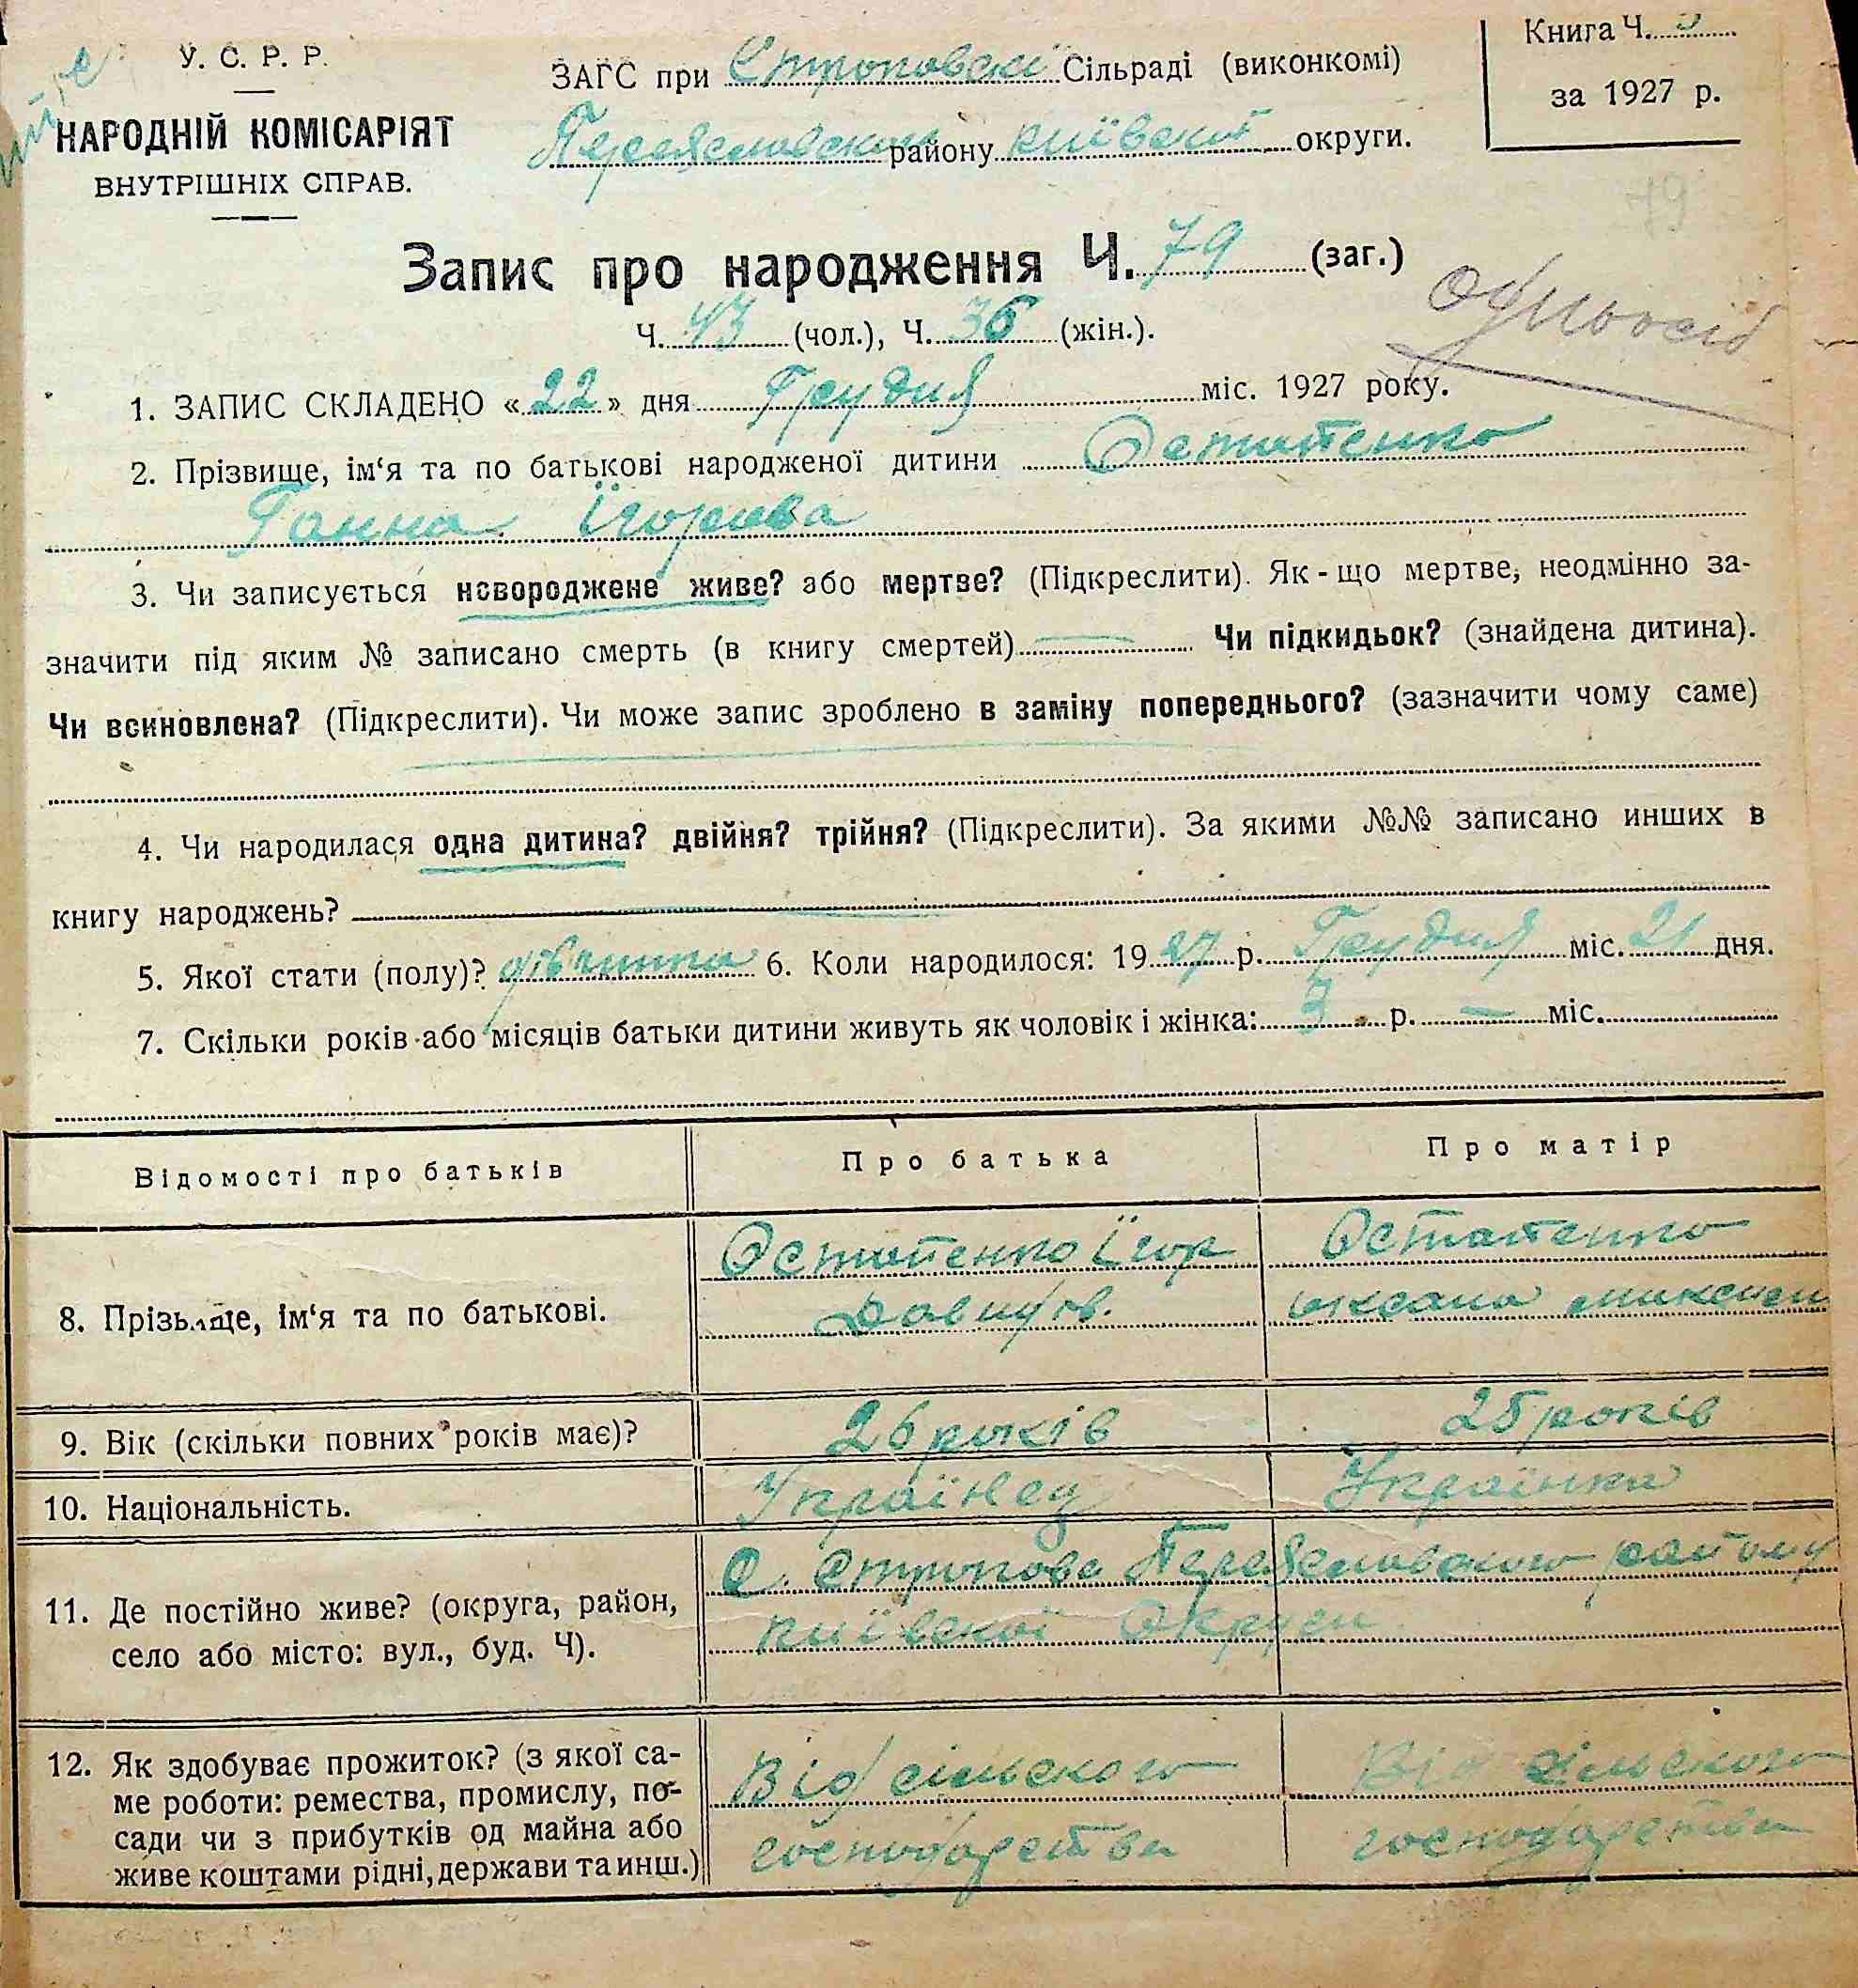 У. С. Р. Р.
НАРОДНІЙ КОМІСАРІЯТ
ВНУТРІШНІХ СПРАВ.
ЗАГС при Строповскі Сільраді (виконкомі)
Переяславського району київскої округи.
Книга Ч.
за 1927 р.
79
Запис про народження Ч. 79 (заг.)
Ч. 43 (чол.), Ч. 36 (жін.).
1. ЗАПИС СКЛАДЕНО «22» дня Грудня міс. 1927 року.
2. Прізвище, ім‘я та по батькові народженої дитини Остапенко
Ганна Ігорова
3. Чи записується новороджене живе? або мертве? (Підкреслити). Як-що мертве, неодмінно за-
значити під яким № записано смерть (в книгу смертей) — Чи підкидьок? (знайдена дитина).
Чи всиновлена? (Підкреслити). Чи може запис зроблено в заміну попереднього? (зазначити чому саме)
4. Чи народилася одна дитина? двійня? трійня? (Підкреслити). За якими №№ записано инших в
книгу народжень?
5. Якої стати (полу)? дівчинка 6. Коли народилося: 1927 р. Грудня міс. 21 дня.
7. Скільки років або місяців батьки дитини живуть як чоловік і жінка: 3 р. — міс.
Відомості про батьків Про батька Про матір
8. Прізвище, ім‘я та по батькові.
Остапенко Ігор
Остапенко
Оксана
9. Вік (скільки повних років має)? 26 років 25 років
10. Національність. Українец Українка
11. Де постійно живе? (округа, район,
село або місто: вул., буд. Ч).
С. Стропова Переяславского району
київскої округи
12. Як здобуває прожиток? (з якої са-
ме роботи: ремества, промислу, по-
сади чи з прибутків од майна або
живе коштами рідні, держави та инш.)
Від сільского
господарства
Від сільского
господарства